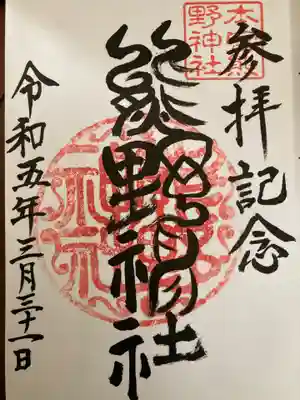 参拝記念
野神社
熊野神社
令和五年三月三十一日